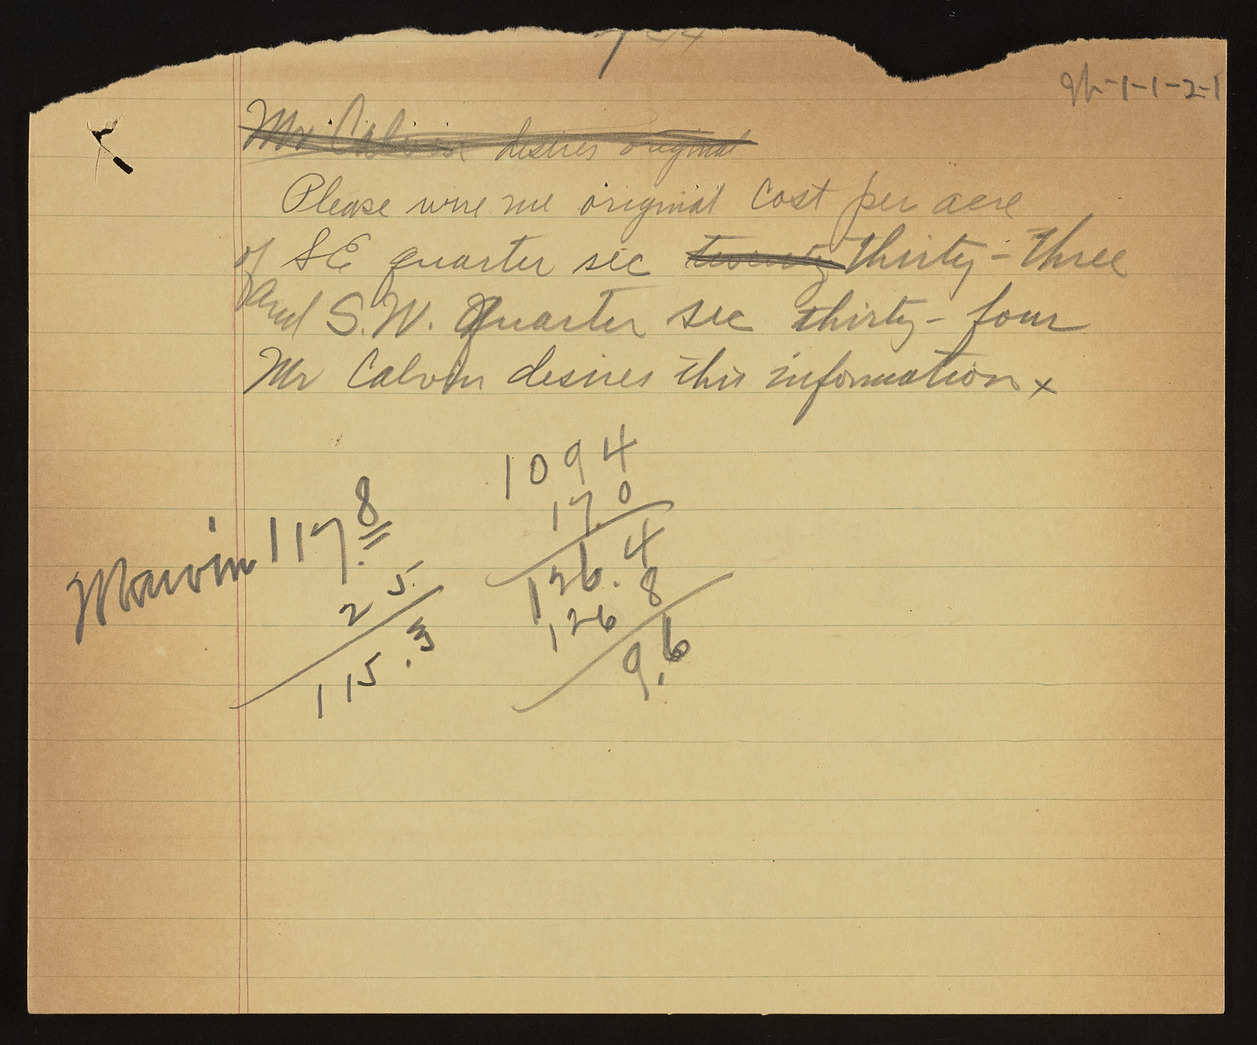 96-1-1-2-1
Mr Calvin desires original
Please wire me original cost per acre
of SE quarter sec twenty thirty-three
and S.W. Quarter sec thirty-four
Mr Calvin desires this information x
1094
17.0
126.4
126 8
9.6
Marvin 117.8
2 5.
115.3